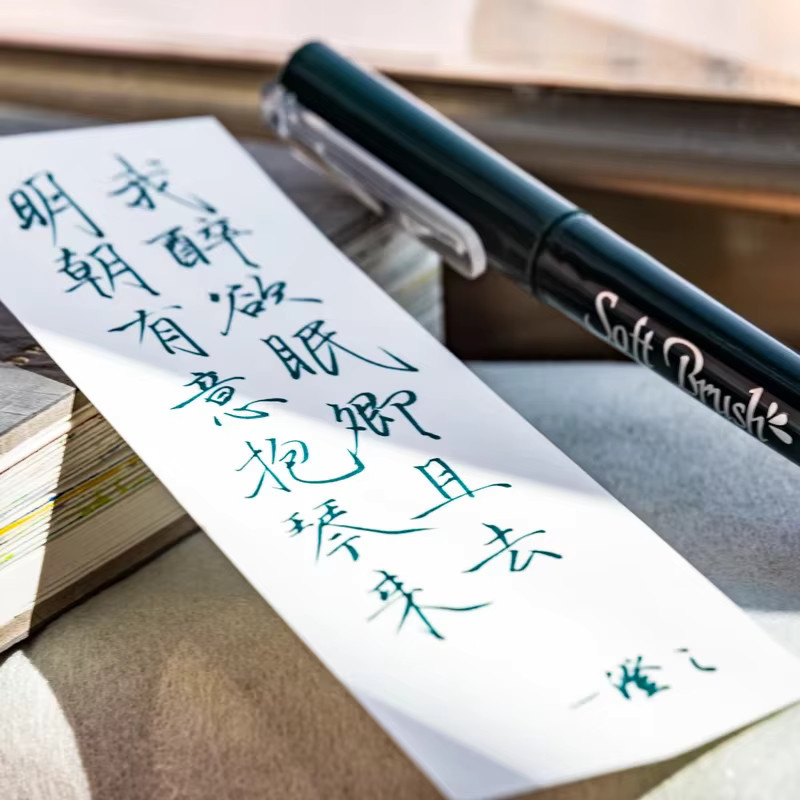 我醉欲眠卿且去
明朝有意抱琴来
一澄之
Soft Brush